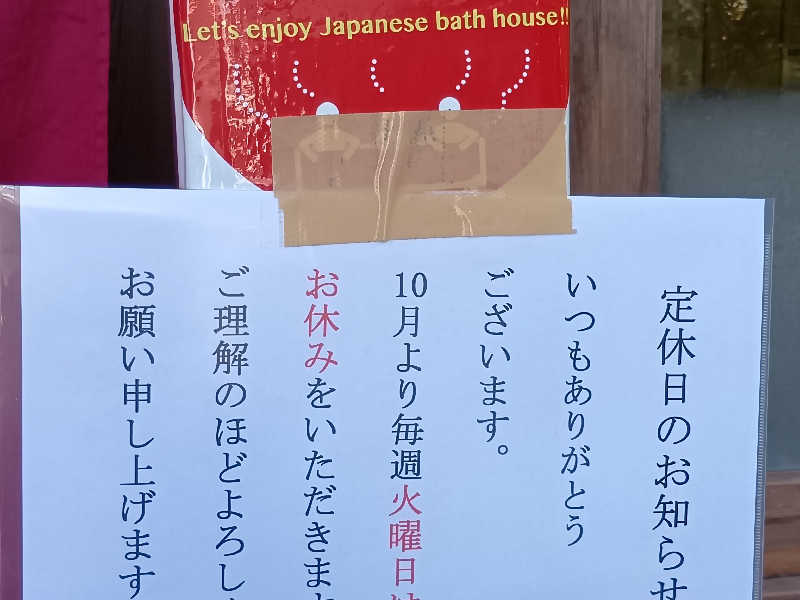 Let's enjoy Japanese bath house!!
定休日のお知らせ
いつもありがとう
ございます。
10月より毎週火曜日は
お休みをいただきます
ご理解のほどよろし
お願い申し上げます